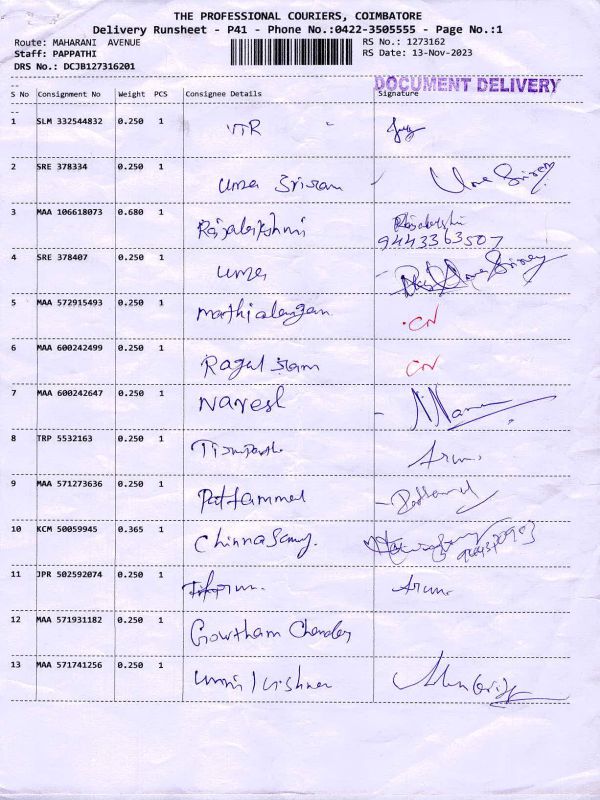 THE PROFESSIONAL COURIERS, COIMBATORE
Delivery Runsheet - P41 - Phone No.:0422-3505555 - Page No.:1
Route: MAHARANI AVENUE RS No.: 1273162
Staff: PAPPATHI RS Date: 13-Nov-2023
DRS No.: DCJB127316201
DOCUMENT DELIVERY
S No Consignment No Weight PCS Consignee Details Signature
1 SLM 332544832 0.250 1 VTR
2 SRE 378334 0.250 1 Uma Sriram Uma Sriram
3 MAA 106618073 0.680 1 Rajalakshmi Rajalakshmi
9443363507
4 SRE 378407 0.250 1 Uma
5 MAA 572915493 0.250 1 Mathialangan CN
6 MAA 600242499 0.250 1 Ragul Sram CN
7 MAA 600242647 0.250 1 Naresh
8 TRP 5532163 0.250 1 Arun.
9 MAA 571273636 0.250 1 Pattammal
10 KCM 50059945 0.365 1 Chinnasamy.
11 JPR 502592074 0.250 1 Arun.
12 MAA 571931182 0.250 1 Gowtham Chander
13 MAA 571741256 0.250 1 Unni Krishnan